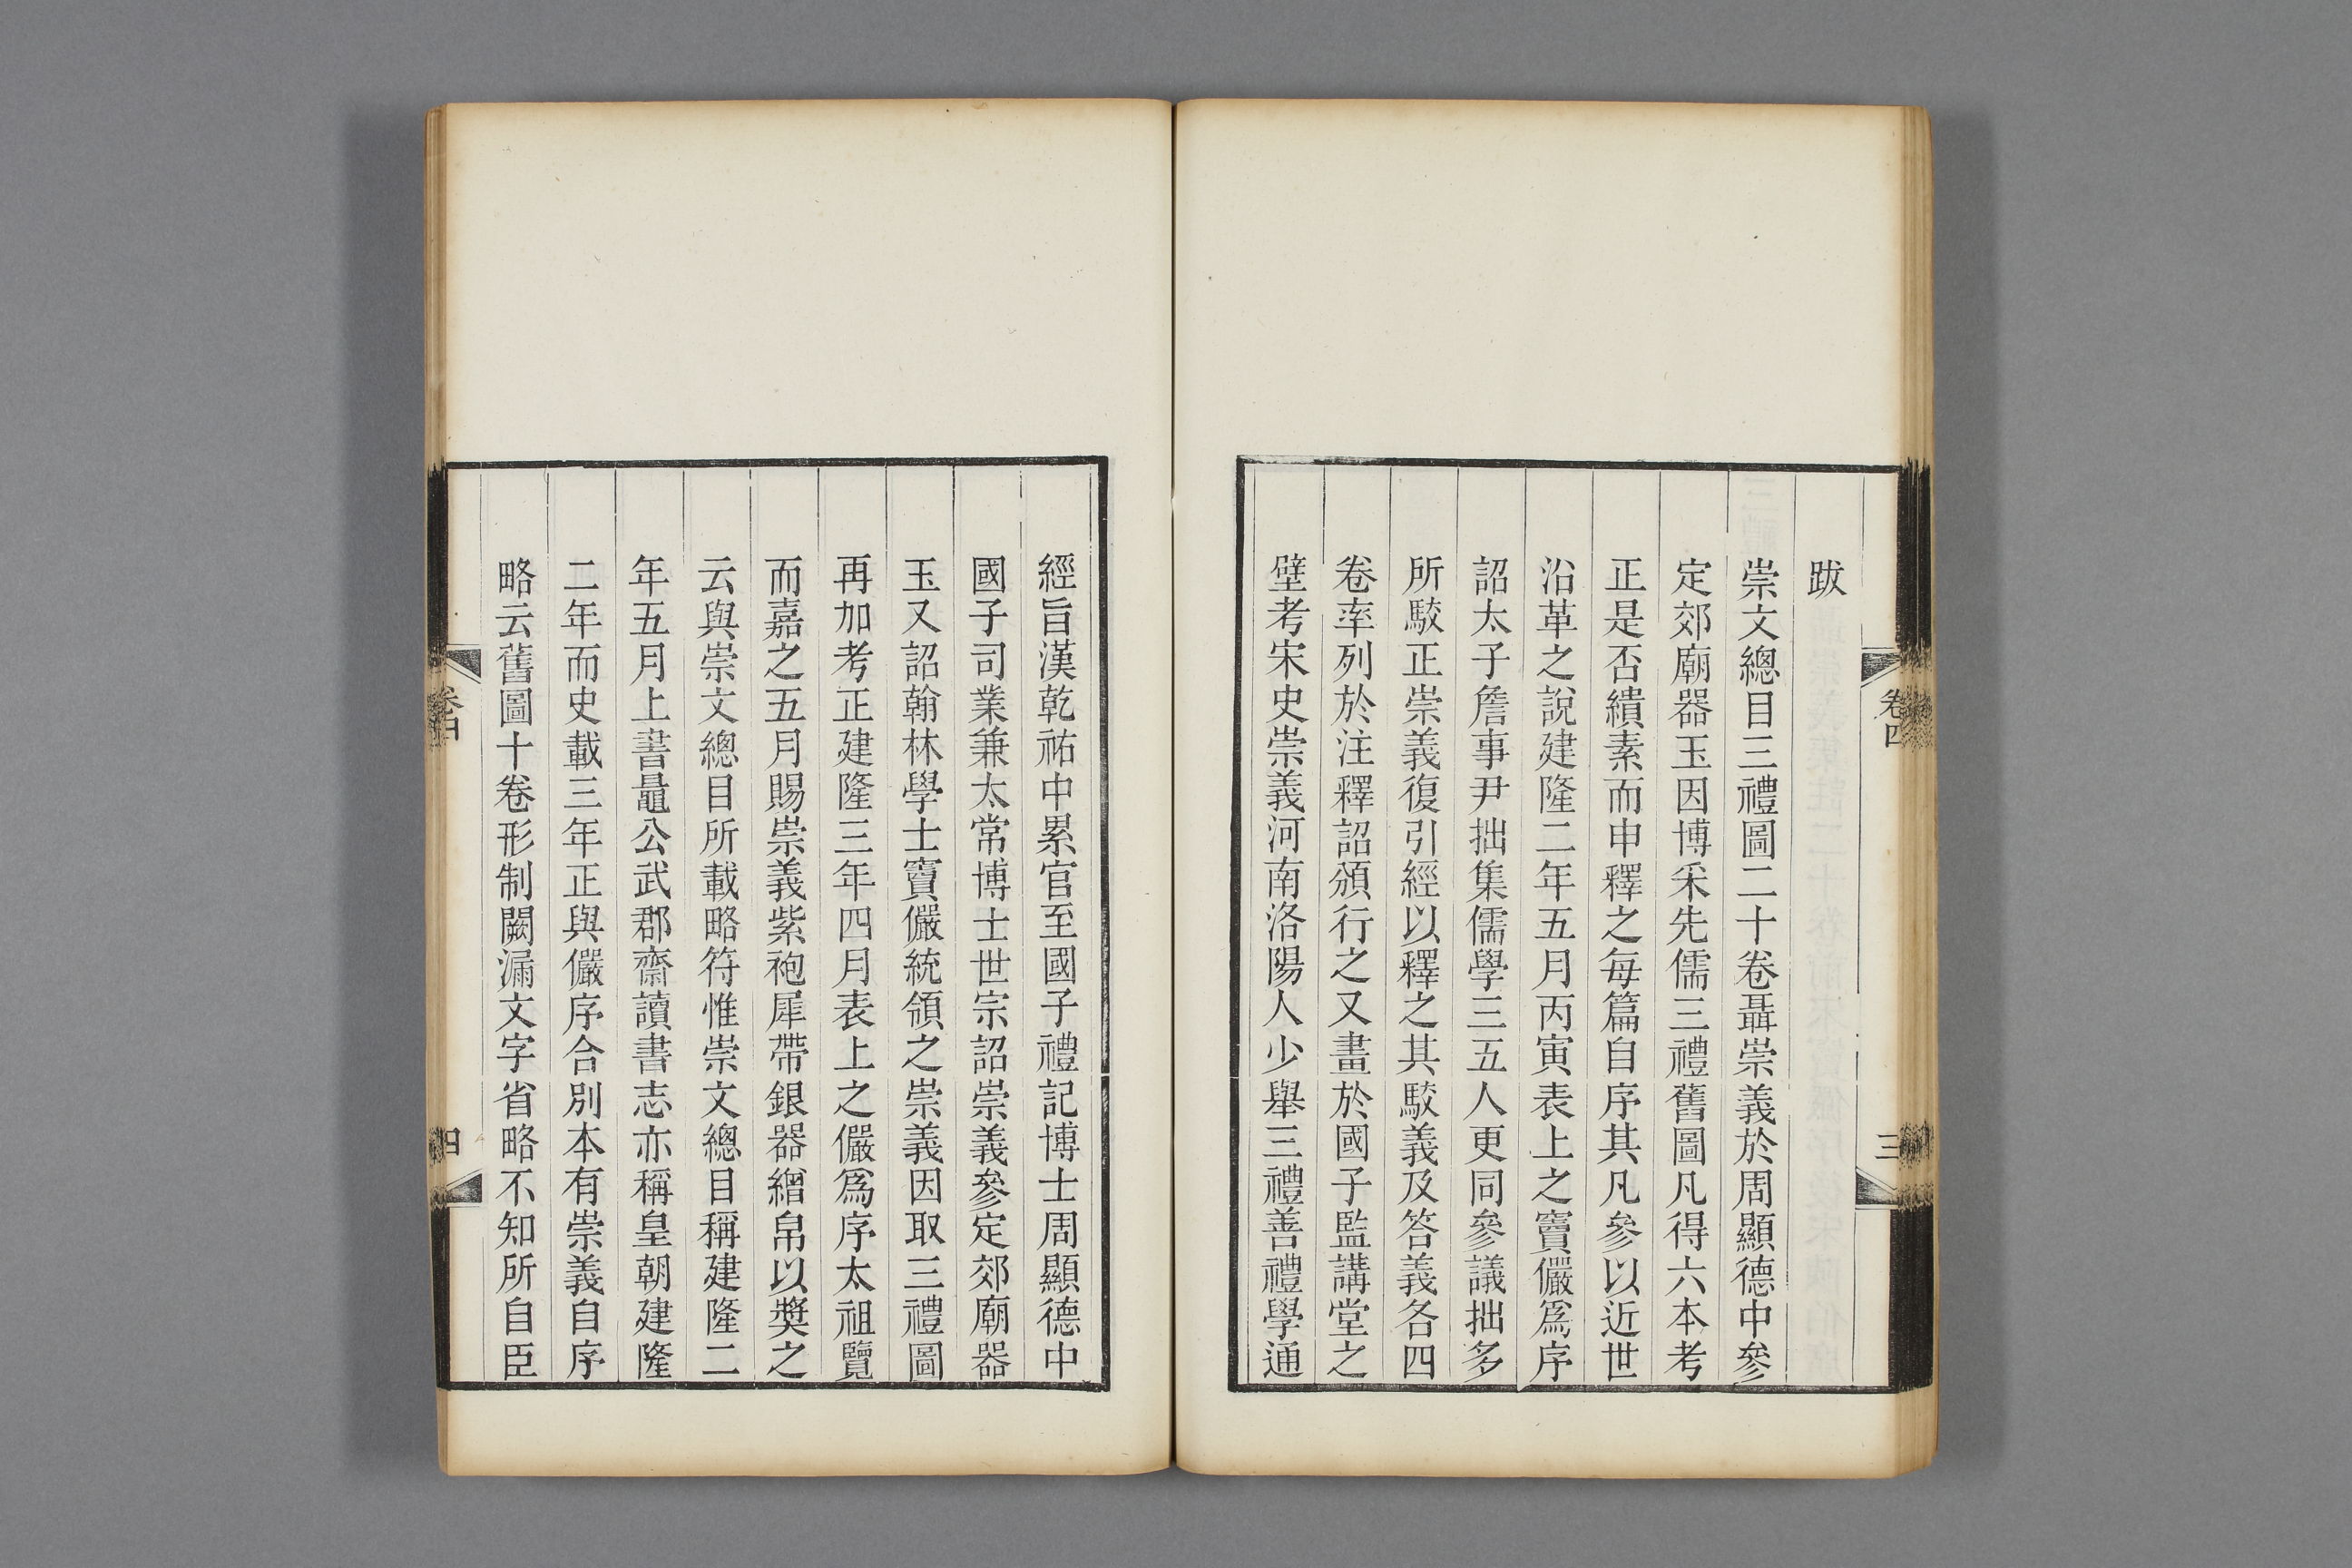 卷四
三
跋
崇文總目三禮圖二十卷聶崇義於周顯德中參
定郊廟器玉因博采先儒三禮舊圖凡得六本考
正是否繢素而申釋之每篇自序其凡參以近世
沿革之說建隆二年五月丙寅表上之竇儼爲序
詔太子詹事尹拙集儒學三五人更同參議拙多
所駮正崇義復引經以釋之其駮義及答義各四
卷率列於注釋詔頒行之又畫於國子監講堂之
壁考宋史崇義河南洛陽人少舉三禮善禮學通
經旨漢乾祐中累官至國子禮記博士周顯德中
國子司業兼太常博士世宗詔崇義參定郊廟器
玉又詔翰林學士竇儼統領之崇義因取三禮圖
再加考正建隆三年四月表上之儼爲序太祖覽
而嘉之五月賜崇義紫袍犀帶銀器繒帛以奬之
云與崇文總目所載略符惟崇文總目稱建隆二
年五月上書鼂公武郡齋讀書志亦稱皇朝建隆
二年而史載三年正與儼序合別本有崇義自序
略云舊圖十卷形制闕漏文字省略不知所自臣
卷四
四